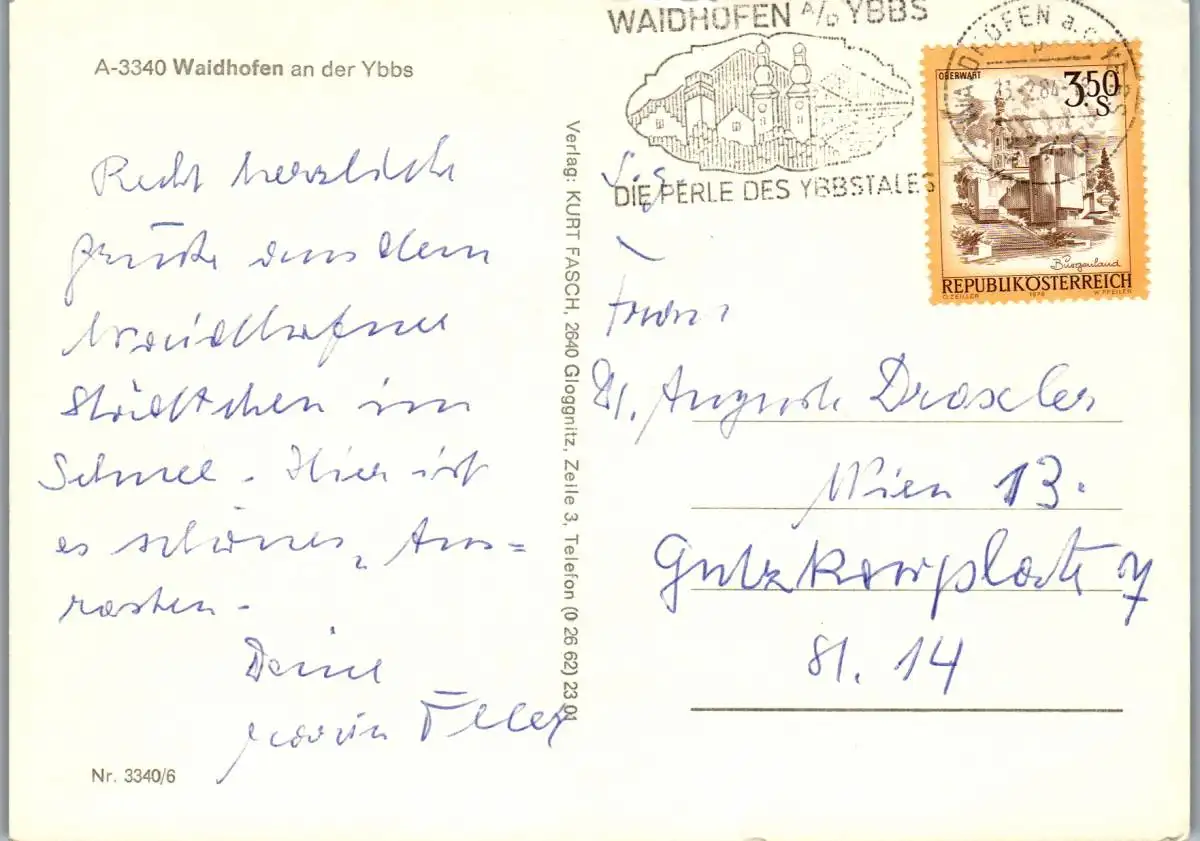 A-3340 Waidhofen an der Ybbs
Recht herzliche
Grüße aus dem
Waidhofner
Städtchen im
Schnee. Hier ist
es schönes Aus=
rasten.
Deine
Nr. 3340/6
Verlag: KURT FASCH, 2640 Gloggnitz, Zeile 3, Telefon (0 26 62) 23 01
WAIDHOFEN A/D YBBS
DIE PERLE DES YBBSTALES
OBERWART
3.50
S
Burgenland
REPUBLIK ÖSTERREICH
O. ZEILLER 1978 W. PFEILER
S.g.
Frau
Dr. Auguste Draxler
Wien 13.
Gutzkowplatz 7
St. 14